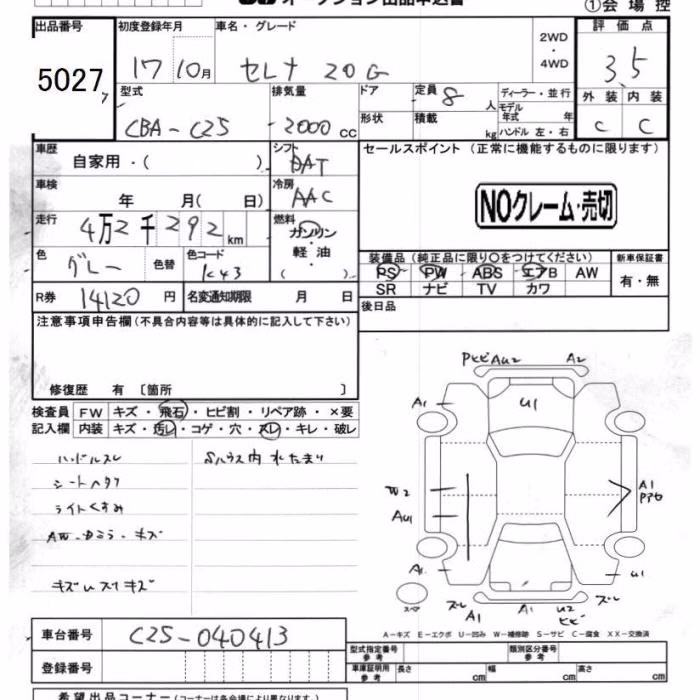 オークション出品申込書
①会場控
出品番号 初度登録年月 車名・グレード 2WD・4WD 評価点
5027 17 10月 セレナ 20G 3.5
型式 排気量 ドア 定員 8人 ディーラー・並行 外装 内装
CBA-C25 2000cc 形状 積載 kg モデル年式 年 ハンドル 左・右 C C
車歴 シフト セールスポイント (正常に機能するものに限ります)
自家用・( ) DAT
車検 冷房
年 月( 日) AAC NOクレーム・売切
走行 燃料
4万2千292km ガソリン
軽油
( )
色 色替 色コード 装備品 (純正品に限り○をつけてください) 新車保証書
グレー K43 PS PW ABS エアB AW 有・無
SR ナビ TV カワ
R券 14120円 名変通知期限 月 日 後日品
注意事項申告欄 (不具合内容等は具体的に記入して下さい)
修復歴 有 〔箇所 〕
検査員 FW キズ・飛石・ヒビ割・リペア跡・×要
記入欄 内装 キズ・汚レ・コゲ・穴・スレ・キレ・破レ
ハンドルスレ Sハウス内 水たまり
シートヘタリ
ライトくすみ
キズ
PヒビAU2 A2
A1 U1
W2 A1
AU1
A1 U1
スペア ズレ A1 A1 U2 ヒビ ズレ
A-キズ E-エクボ U-凹み W-補修跡 S-サビ C-腐食 XX-交換済
車台番号 C25-040413
登録番号
型式指定番号 参考 類別区分番号 参考
車庫証明用 参考 長さ cm 幅 cm 高さ cm
希望出品コーナー (コーナーは各会場により異なります。)